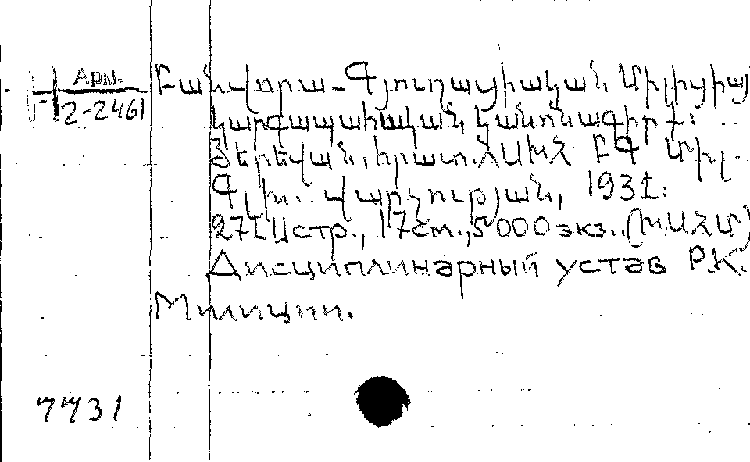 Арм.
2-2461
Բանվորա-Գյուղացիական Միլիցիայ
կարգապահական կանոնագիրք:
Յերեվան, հրատ. ՀՍԽՀ ԲԳ Միլ.
Գլխ. վարչության, 1931:
27 стр., 17см., 5000 экз. (ԽՍՀՄ)
Дисциплинарный устав Р.К.
Милиции.
7731